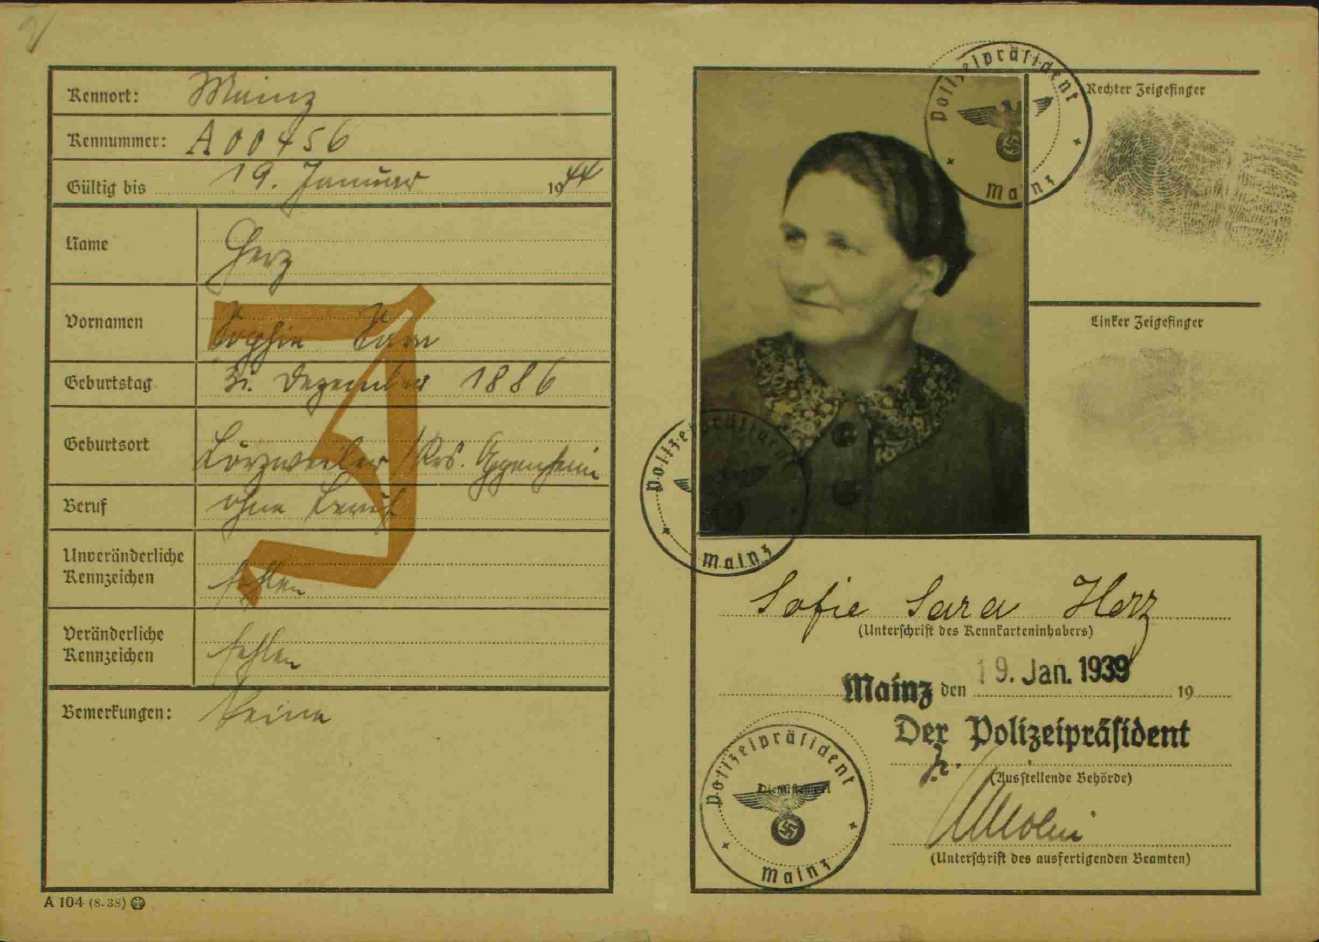 Kennort: Mainz
Kennummer: A 00456
Gültig bis 19. Januar 1944
Name Herz
Vornamen Sophie Sara
Geburtstag 3. Dezember 1886
Geburtsort Lörzweiler /Krs. Oppenheim
Beruf ohne Beruf
Unveränderliche Kennzeichen fehlen
Veränderliche Kennzeichen fehlen
Bemerkungen: Keine
J
A 104 (8.38)
Polizeipräsident
Mainz
Rechter Zeigefinger
Linker Zeigefinger
Polizeipräsident
Mainz
Sofie Sara Herz
(Unterschrift des Kennkarteninhabers)
Mainz den 19. Jan. 1939 19
Der Polizeipräsident
(Ausstellende Behörde)
(Unterschrift des ausfertigenden Beamten)
Polizeipräsident
Dienststempel
Mainz